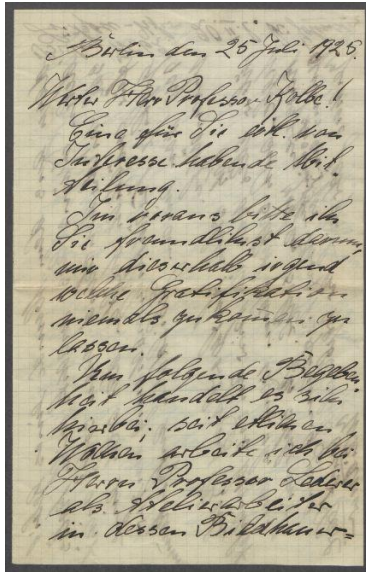 Berlin den 25 Juli 1926.
Werter Herr Professor Kolbe!
Eine für Sie evtl. von
Interesse habende Mit,
teilung.
Im voraus bitte ich
Sie freundlichst darum,
mir dieserhalb irgend
welche Gratifikation
niemals zukommen zu
lassen.
Um folgende Begeben,
heit handelt es sich
hierbei; seit etlichen
Wochen arbeite ich bei
Herrn Professor Lederer
als Atelierarbeiter
in dessen Bildhauer=